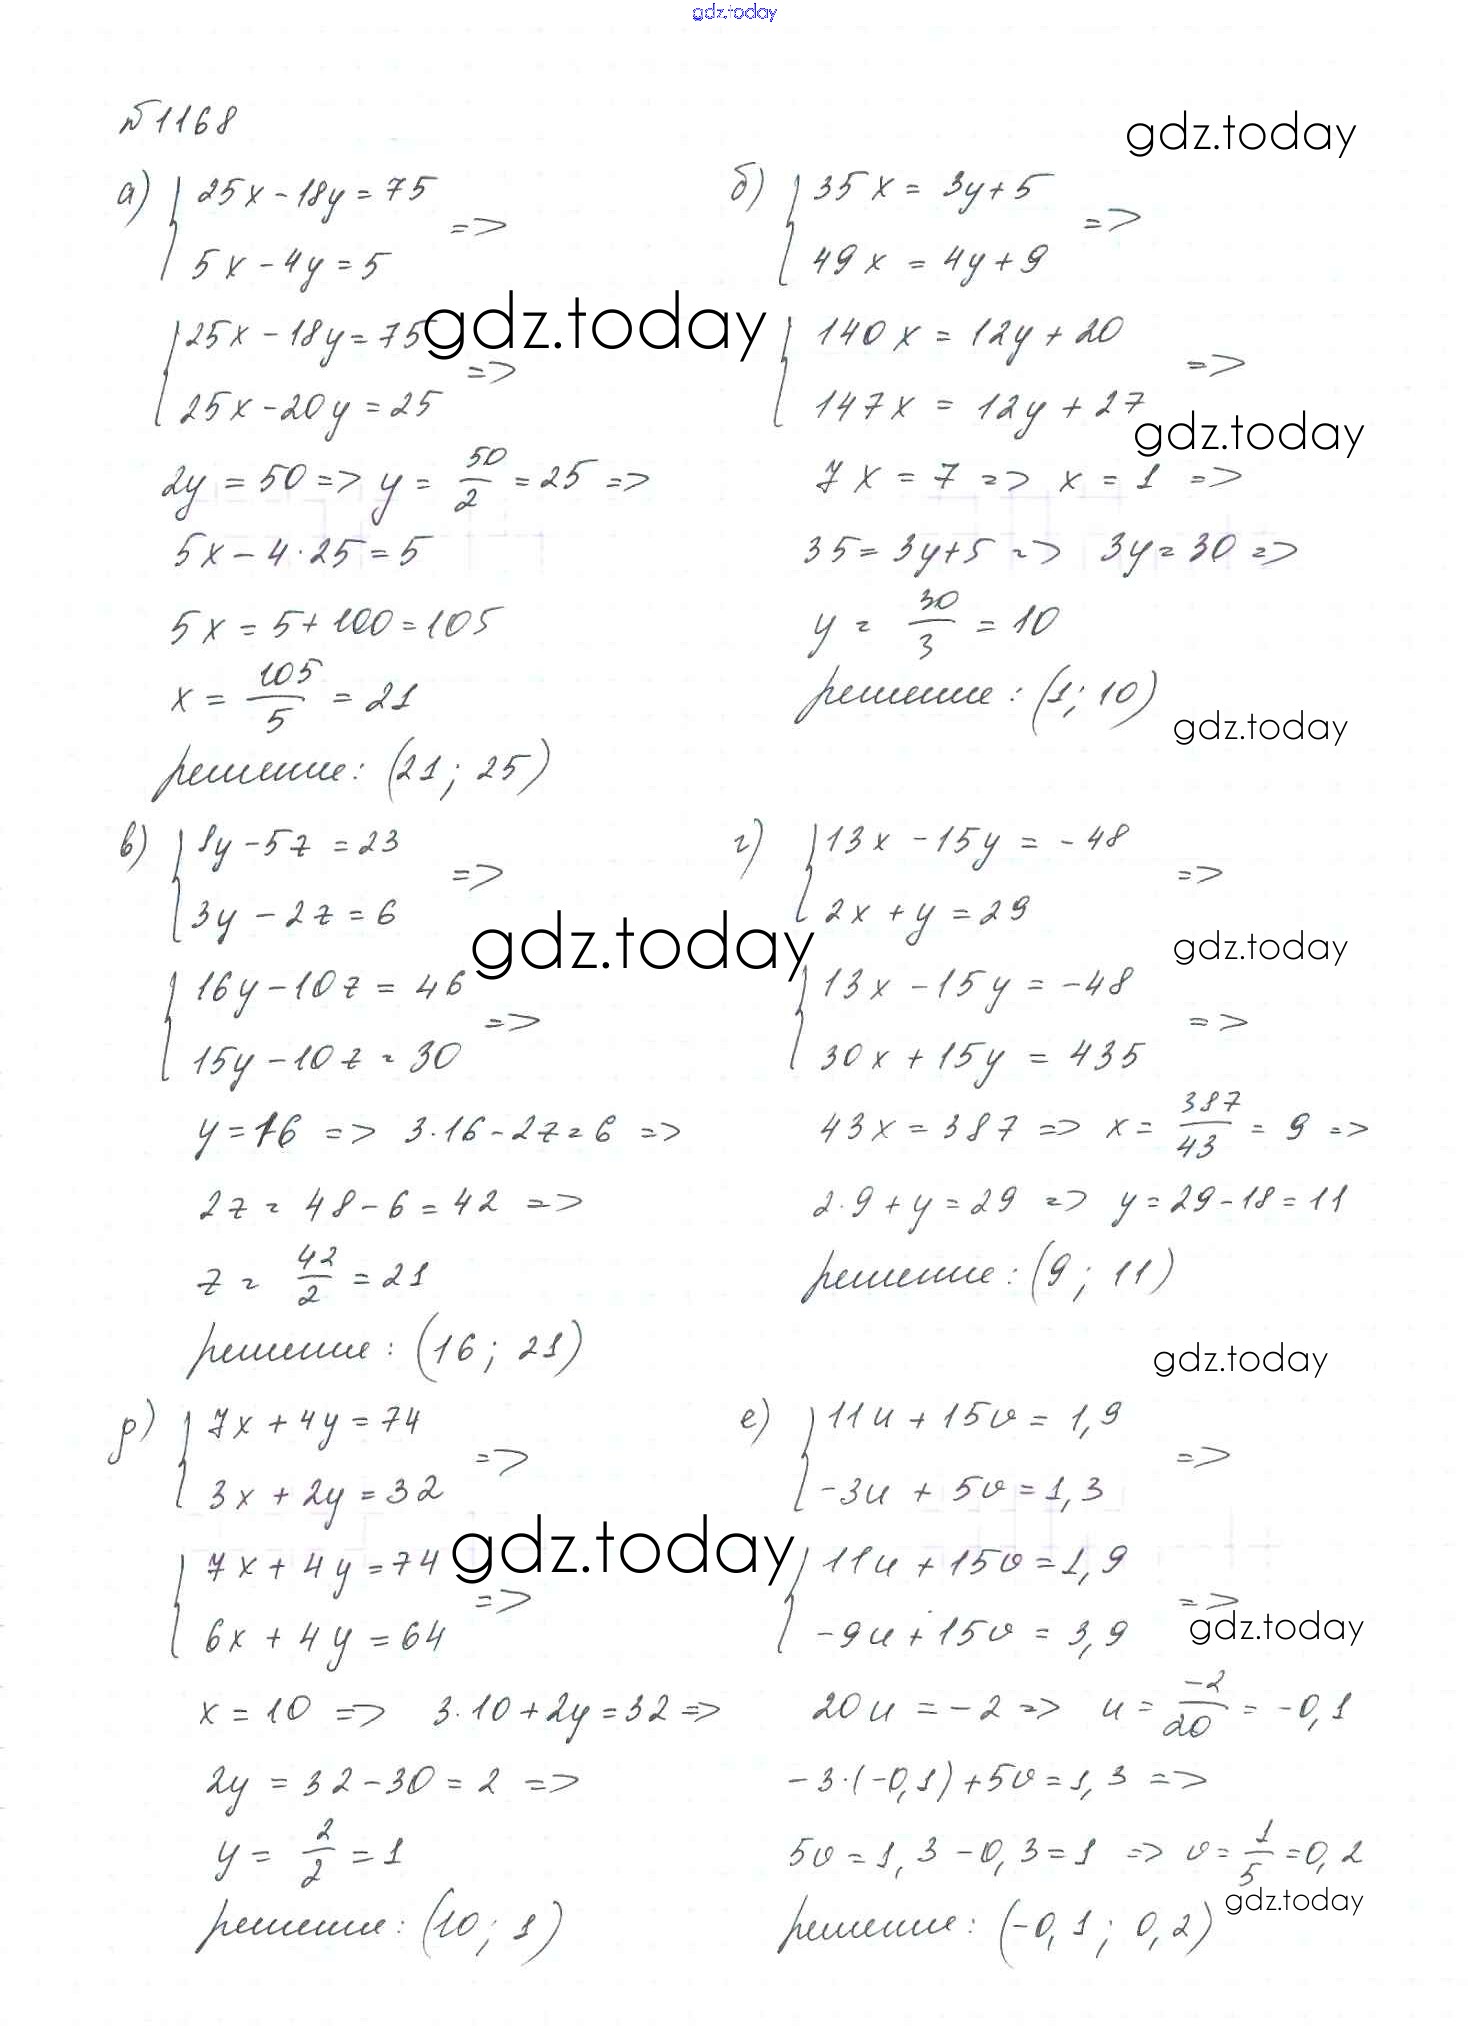 gdz.today
№1168
gdz.today
а) { 25x - 18y = 75
5x - 4y = 5 =>
{ 25x - 18y = 75
25x - 20y = 25 =>
gdz.today
2y = 50 => y = 50/2 = 25 =>
5x - 4·25 = 5
5x = 5 + 100 = 105
x = 105/5 = 21
решение: (21; 25)
б) { 35x = 3y + 5
49x = 4y + 9 =>
{ 140x = 12y + 20
147x = 12y + 27 =>
gdz.today
7x = 7 => x = 1 =>
35 = 3y + 5 => 3y = 30 =>
y = 30/3 = 10
решение: (1; 10)
gdz.today
в) { 8y - 5z = 23
3y - 2z = 6 =>
gdz.today
{ 16y - 10z = 46
15y - 10z = 30 =>
y = 16 => 3·16 - 2z = 6 =>
2z = 48 - 6 = 42 =>
z = 42/2 = 21
решение: (16; 21)
г) { 13x - 15y = -48
2x + y = 29 =>
gdz.today
{ 13x - 15y = -48
30x + 15y = 435 =>
43x = 387 => x = 387/43 = 9 =>
2·9 + y = 29 => y = 29 - 18 = 11
решение: (9; 11)
gdz.today
д) { 7x + 4y = 74
3x + 2y = 32 =>
gdz.today
{ 7x + 4y = 74
6x + 4y = 64 =>
x = 10 => 3·10 + 2y = 32 =>
2y = 32 - 30 = 2 =>
y = 2/2 = 1
решение: (10; 1)
е) { 11u + 15v = 1,9
-3u + 5v = 1,3 =>
{ 11u + 15v = 1,9
-9u + 15v = 3,9 =>
gdz.today
20u = -2 => u = -2/20 = -0,1
-3·(-0,1) + 5v = 1,3 =>
5v = 1,3 - 0,3 = 1 => v = 1/5 = 0,2
gdz.today
решение: (-0,1; 0,2)